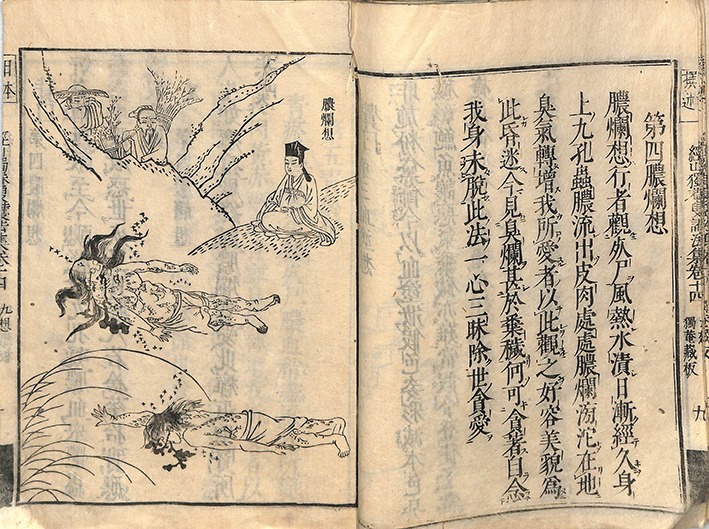 撰述
護法集卷十四
獨菴藏板
九
第四膿爛想
膿爛想行者觀死尸風熱水漬日漸經久身
上九孔蟲膿流出皮肉處處膿爛滂沱在地
臭氣轉增我所愛者以此觀之好容美貌為
此昏迷今見臭爛甚於糞穢何可貪著自念
我身未脫此法一心三昧除世貪愛
膿爛想
日本
九想
九